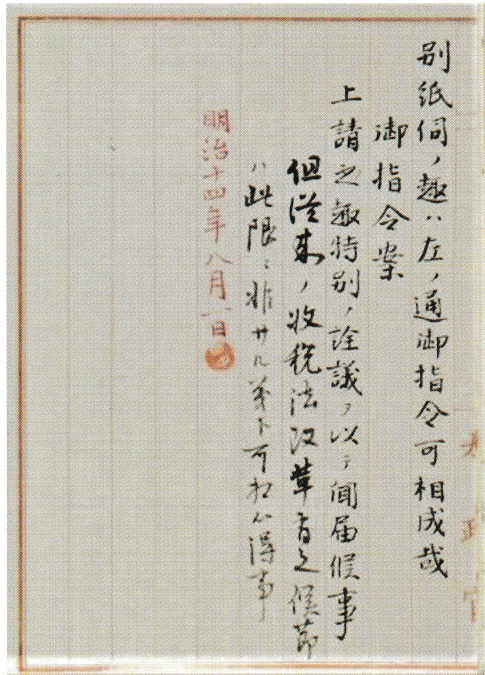 別紙伺ノ趣ハ左ノ通御指令可相成哉
御指令案
上請之趣特別ノ詮議ヲ以テ聞届候事
但従来ノ收税法改革有之候節
ハ此限ニ非サル義ト可相心得事
明治十四年八月一日
太政官